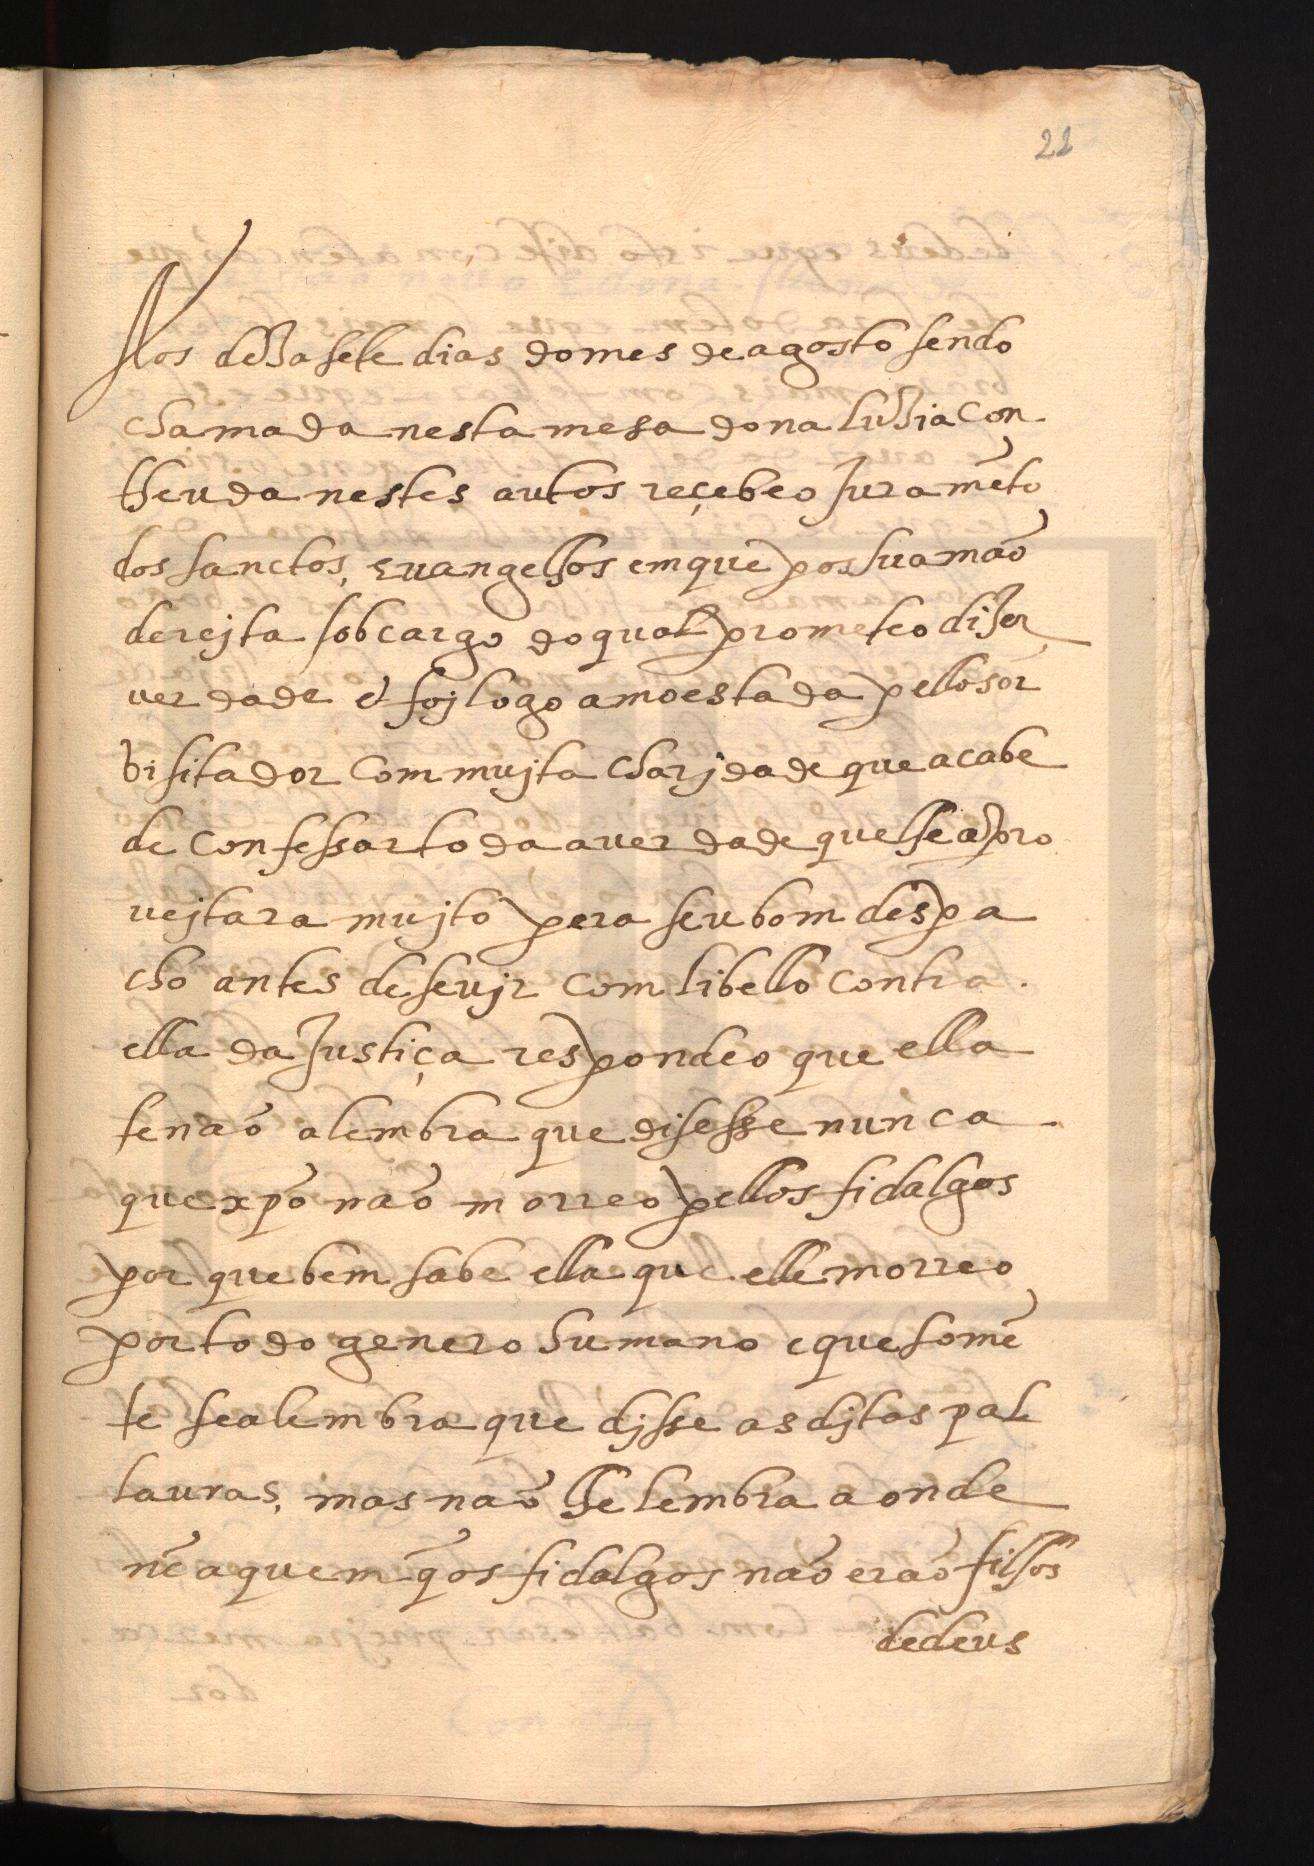 21
Aos dezasete dias do mes de agosto sendo
chamada nesta mesa dona luzia con
theuda nestes autos reçebeo Juramẽto
dos sanctos, Euangelhos em que pos sua mão
derejta sob cargo do qual prometeo dizer
verdade & foj logo amoestada pello sor
visitador com mujta charjdade que acabe
de confessar toda a verdade que lhe apro
vejtara mujto pera seu bom despa
cho antes de se vjr com libello contra
ella da Justiça respondeo que ella
se não alembra que disesse nunca
que xpo não morreo pellos fidalgos
por que bem sabe ella que elle morreo
por todo genero humano e que somẽ
te se alembra que djsse as djtas pal
lauras, mas não lhe lembra a onde
nẽ a quem q̃ os fidalgos não erão filhos
de deus